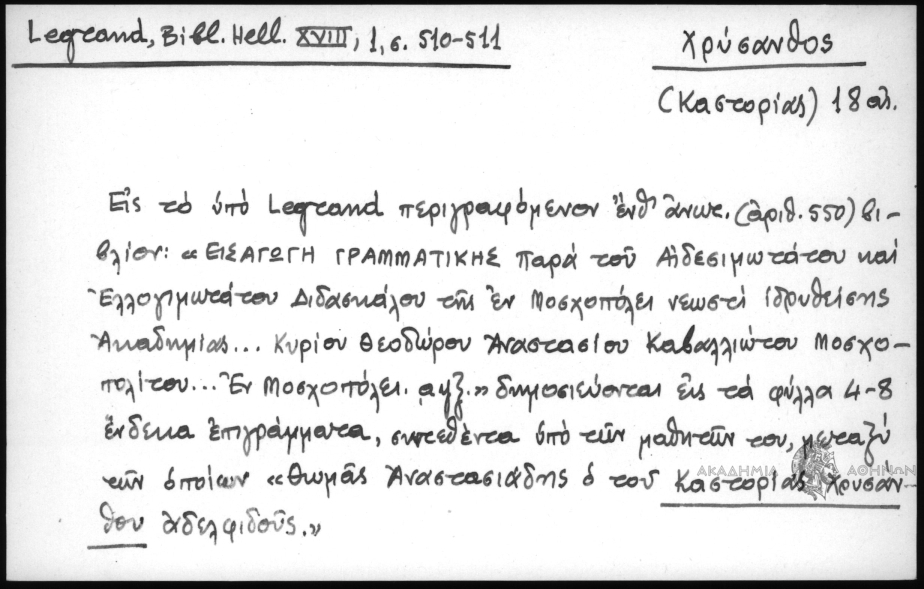 Legrand, Bibl. Hell. XVIII, 1, σ. 510-511
Χρύσανθος
(Καστορίας) 18 αι.
Εἰς τὸ ὑπὸ Legrand περιγραφόμενον ἔνθ' ἄνωτ. (ἀριθ. 550) βι-
βλίον: «ΕΙΣΑΓΩΓΗ ΓΡΑΜΜΑΤΙΚΗΣ παρὰ τοῦ Αἰδεσιμωτάτου καὶ
Ἐλλογιμωτάτου Διδασκάλου τῆς ἐν Μοσχοπόλει νεωστὶ ἱδρυθείσης
Ἀκαδημίας... Κυρίου Θεοδώρου Ἀναστασίου Καβαλλιώτου Μοσχο-
πολίτου... Ἐν Μοσχοπόλει. αψξ.» δημοσιεύονται εἰς τὰ φύλλα 4-8
ἕνδεκα ἐπιγράμματα, συντεθέντα ὑπὸ τῶν μαθητῶν του, μεταξὺ
τῶν ὁποίων «Θωμᾶς Ἀναστασιάδης ὁ τοῦ Καστορίας Χρυσάν-
θου ἀδελφιδοῦς.»
ΑΚΑΔΗΜΙΑ ΑΘΗΝΩΝ